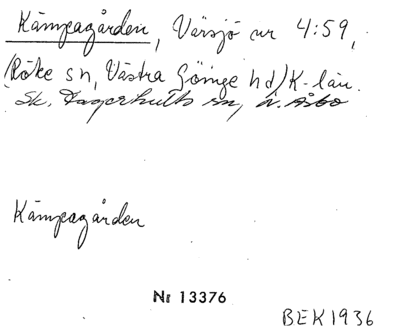 Kämpagården, Värsjö nr 4:59,
(Röke sn, Västra Göinge hd) K-län.
Sk. Fagerhults sn, N. Åsbo
Kämpagården
Nr 13376
BEK 1936